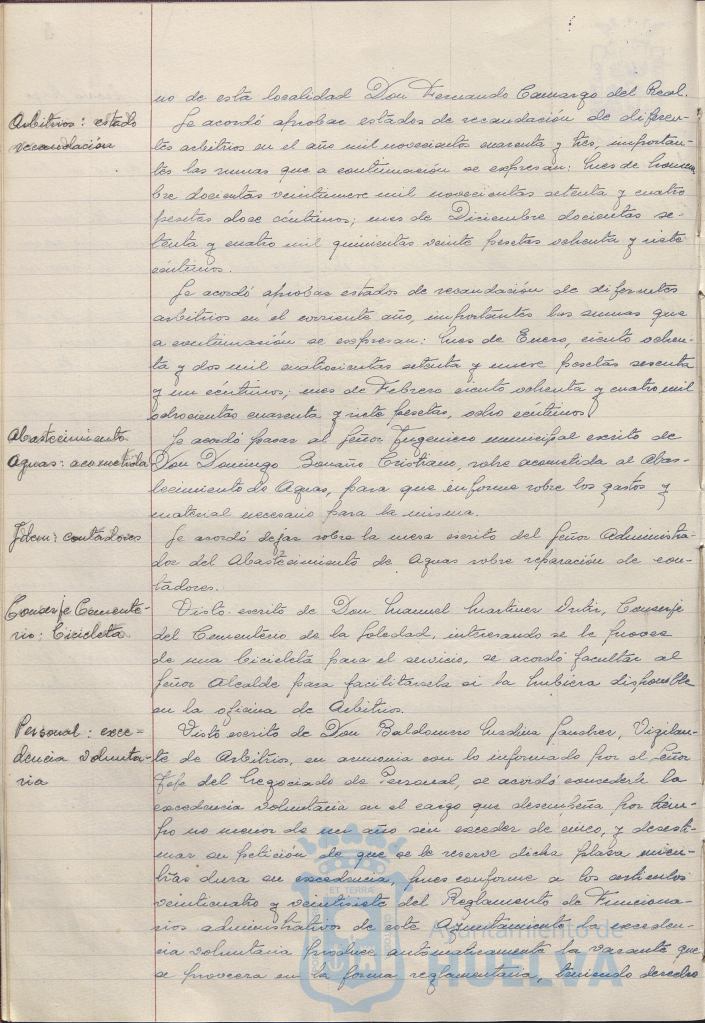 no de esta localidad Don Fernando Camargo del Real.
Arbitrios: estado
recaudación
Se acordó aprobar estados de recaudación de diferen-
tes arbitrios en el año mil novecientos cuarenta y tres, importan-
tes las sumas que a continuación se expresan: Mes de Noviem-
bre docientas veintinueve mil novecientas setenta y cuatro
pesetas doce céntimos; mes de Diciembre docientas se-
tenta y cuatro mil quinientas veinte pesetas ochenta y siete
céntimos.
Se acordó aprobar estados de recaudación de diferentes
arbitrios en el corriente año, importantes las sumas que
a continuación se expresan: Mes de Enero, ciento ochen-
ta y dos mil cuatrocientas setenta y nueve pesetas sesenta
y un céntimos; mes de Febrero ciento ochenta y cuatro mil
ochocientas cuarenta y siete pesetas, ocho céntimos.
Abastecimiento
Aguas: acometida
Se acordó pasar al Señor Ingeniero municipal escrito de
Don Domingo Bonaño Cristiano, sobre acometida al Abas-
tecimiento de Aguas, para que informe sobre los gastos y
material necesario para la misma.
Idem: contadores
Se acordó dejar sobre la mesa escrito del Señor Administra-
dor del Abastecimiento de Aguas sobre reparación de con-
tadores.
Conserje Cemente-
rio: bicicleta
Visto escrito de Don Manuel Martinez Ortiz, Conserje
del Cementerio de la Soledad, interesando se le provea
de una bicicleta para el servicio, se acordó facultar al
Señor Alcalde para facilitarsela si la hubiera disponible
en la oficina de Arbitrios.
Personal: exce-
dencia volunta-
ria
Visto escrito de Don Baldomero Medina Sanchez, Vigilan-
te de Arbitrios, en armonia con lo informado por el Señor
Jefe del Negociado de Personal, se acordó concederle la
excedencia voluntaria en el cargo que desempeña por tiem-
po no menor de un año sin exceder de cinco, y desesti-
mar su petición de que se le reserve dicha plaza mien-
tras dura su excedencia, pues conforme a los articulos
veinticuatro y veintisiete del Reglamento de Funciona-
rios administrativos de este Ayuntamiento la exceden-
cia voluntaria produce automaticamente la vacante que
se proveera en la forma reglamentaria, teniendo derecho
Ayuntamiento de
HUELVA